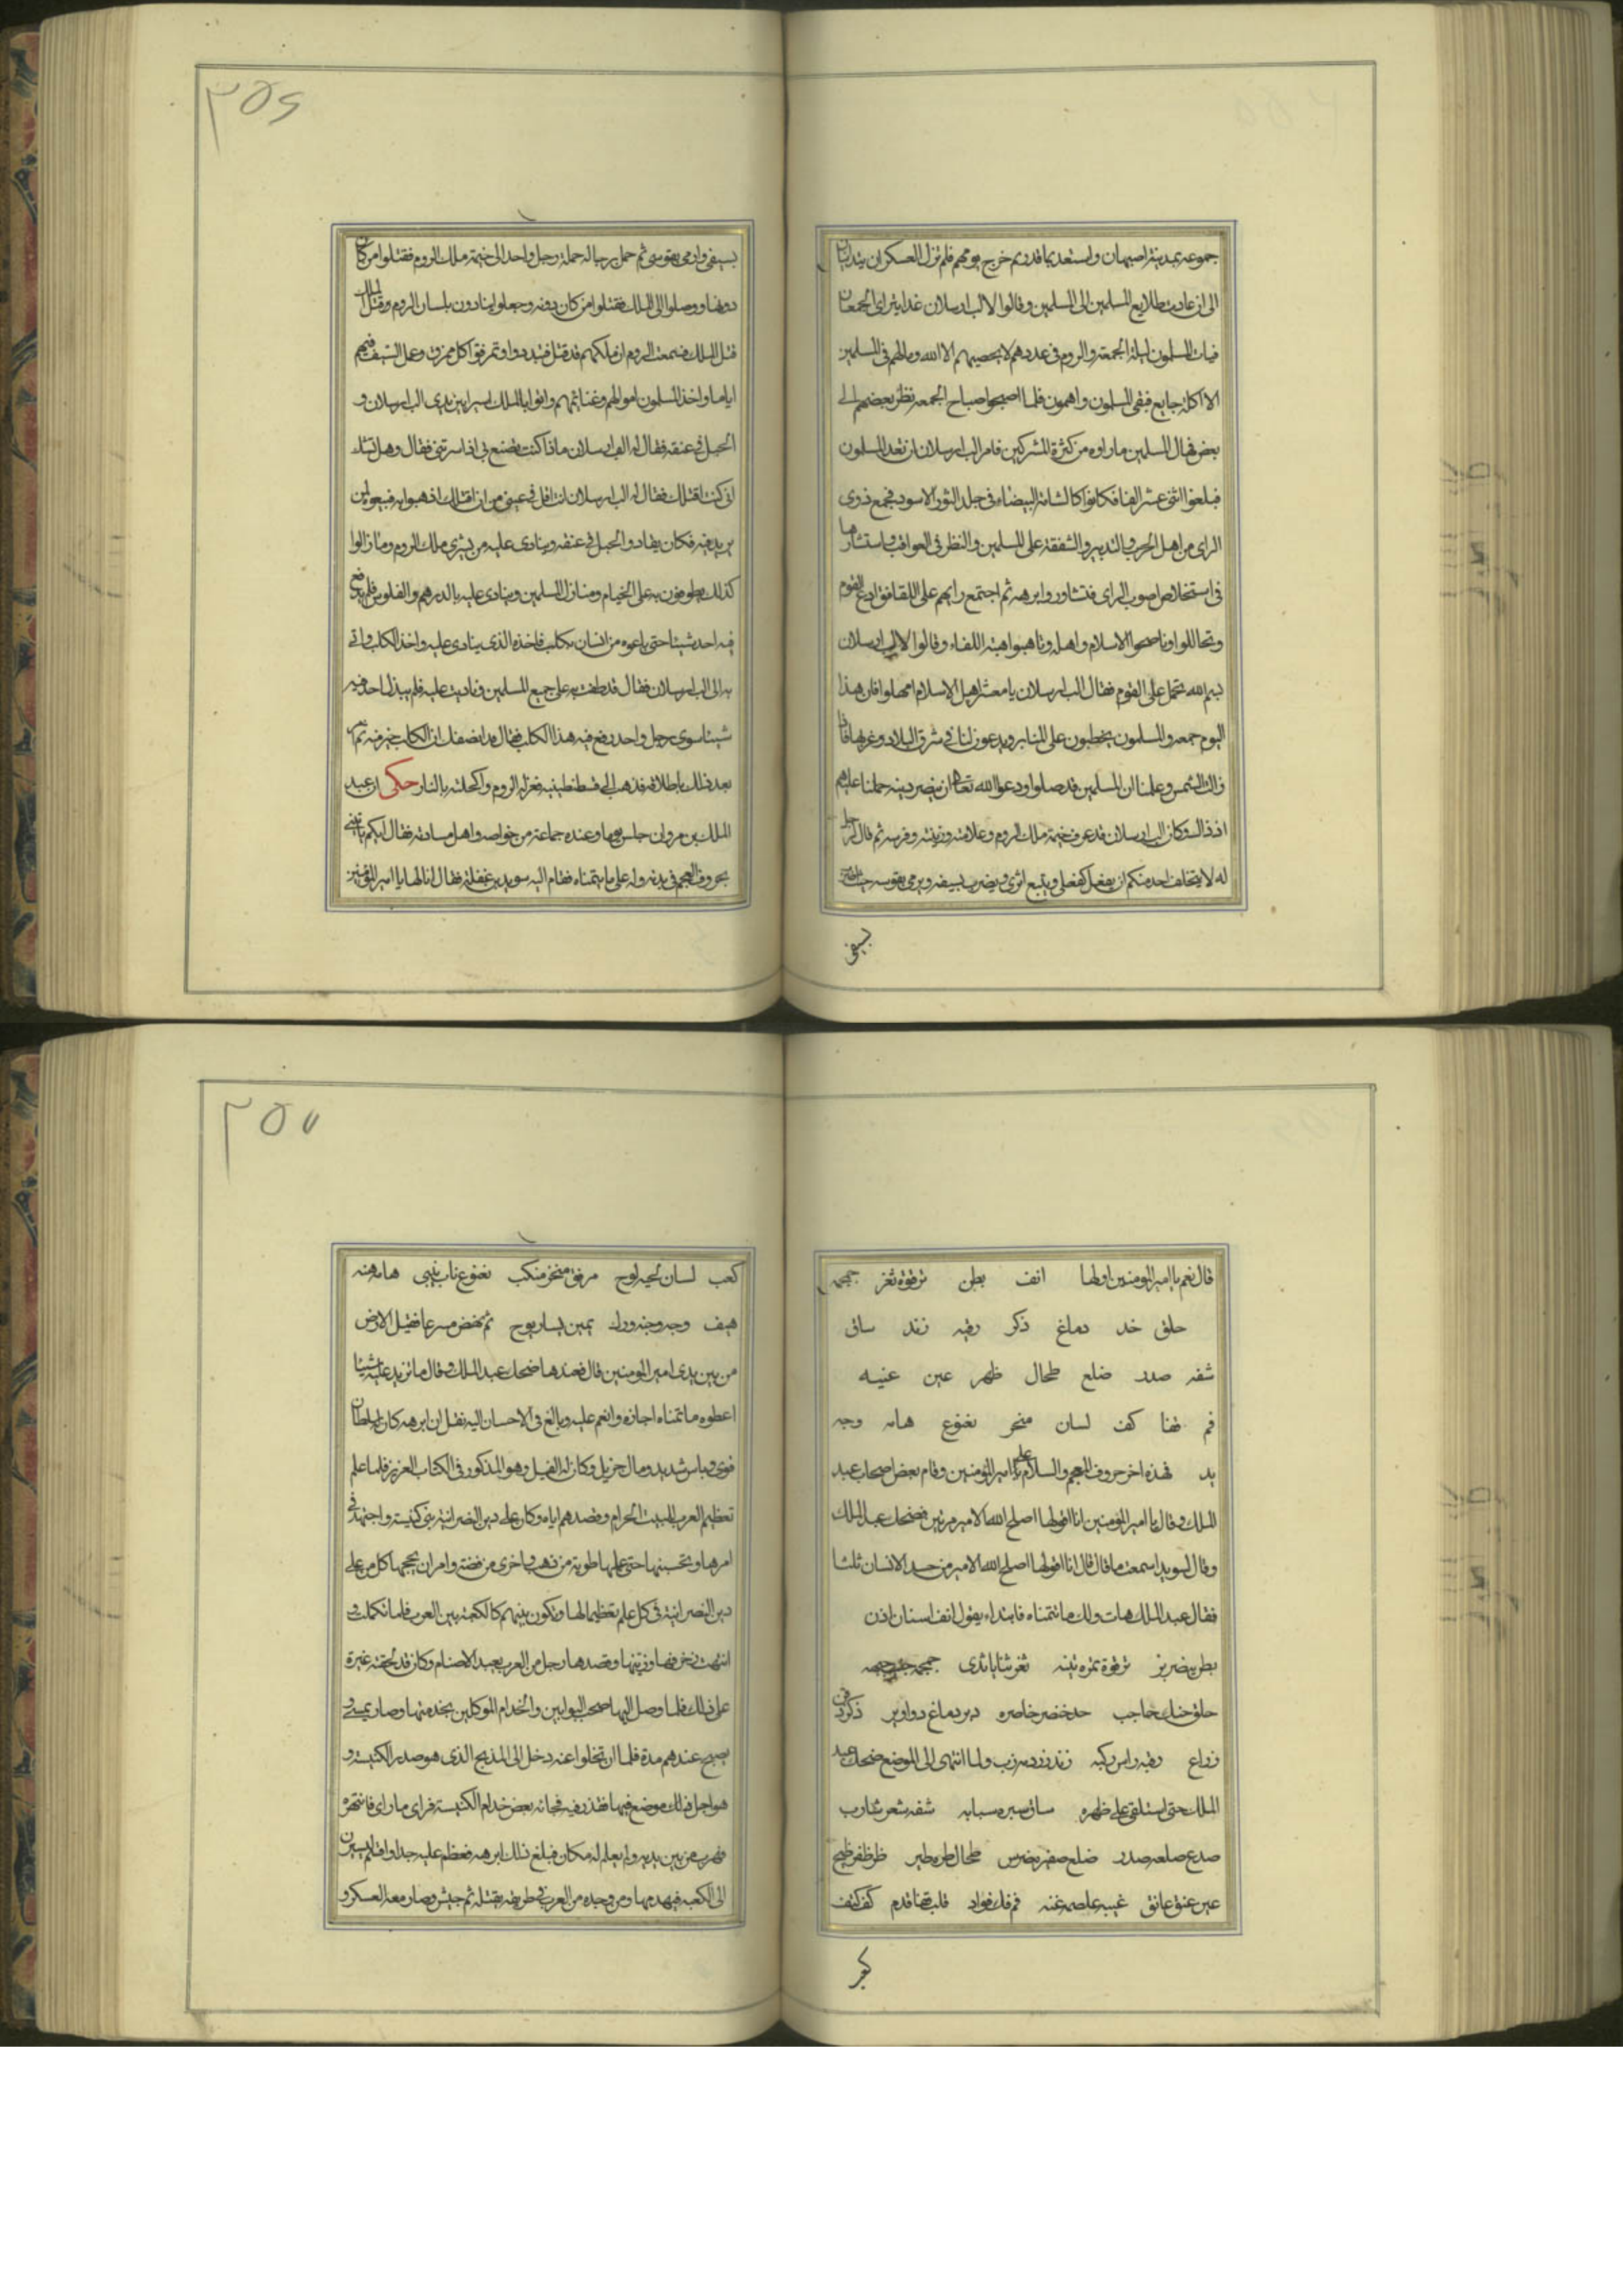 جموعه بمدينة اصبهان واستعد بما قدر ثم خرج يومهم فلم تزل العسكران يتدانيان
الى ان عادت طلايع المسلمين الى المسلمين وقالوا لالب ارسلان غدا يترااى الجمعان
فبات المسلمون ليلة الجمعة والروم فى عددهم لا يحصيهم الا الله وما لهم فى المسلمين
الا اكلة جايع فبقى المسلمون واهمون فلما اصبحوا صباح الجمعه نظر بعضهم الى
بعض فهال المسلمين ما راوه من كثرة المشركين فامر الب ارسلان ان تعد المسلمون
فبلغوا اثنى عشر الفا فكانوا كالشامة البيضاء فى جلد الثور الاسود فجمع ذوى
الراى من اهل الحرب والتدبير والشفقة على المسلمين والنظر فى العواقب واستشارها
فى استخلاص اصوب الراى فتشاوروا برهه ثم اجتمع رايهم على اللقا فتوادع القوم
وتحاللوا وناصحوا الاسلام واهله وتاهبوا اهبة اللقاء وقالوا لالب ارسلان
بسم الله نحمل على القوم فقال الب ارسلان يا معشر اهل الاسلام امهلوا فان هذا
اليوم جمعه والمسلمون يخطبون على المنابر ويدعون لنا فى شرق البلاد وغربها فاذا
زالت الشمس وعلمنا ان المسلمين قد صلوا ودعوا الله تعالى ان ينصر دينه حملنا عليهم
اذ ذاك وكان الب ارسلان قد عرف خيمة ملك الروم وعلامته وزينته وفرسه ثم قال لرجا
له لا يتخلف احد منكم ان يفعل كفعلى ويتبع اثرى ويضرب بسيفه ويرمى بقوسه حيث
بسيفى
٣٥٦
بسيفى وارمى بقوسى ثم حمل برجاله حملة رجل واحد الى خيمة ملك الروم فقتلوا من كان
دونها ووصلوا الى الملك فقتلوا من كان دونه وجعلوا ينادون بلسان الروم وقتل الملك
قتل الملك فسمعت الروم ان ملكهم قد قتل فتبددوا وتمزقوا كل ممزق وعمل السيف فيهم
اياما واخذ المسلمون اموالهم وغنائمهم واتوا بالملك اسيرا بين يدى الب ارسلان و
الحبل فى عنقه فقال له الب ارسلان ماذا كنت تصنع بى اذا اسرتنى فقال وهل تشك
انى كنت اقتلك فقال له الب ارسلان انت اقل فى عينى من ان اقتلك اذهبوا به فبيعوه لمن
يريد فيه فكان يقاد والحبل فى عنقه وينادى عليه من يشترى ملك الروم وما زالوا
كذلك يطوفون به على الخيام ومنازل المسلمين وينادى عليه بالدرهم والفلوس فلم يدفع
فيه احد شيئا حتى باعوه من انسان بكلب فاخذه الذى ينادى عليه واخذ الكلب واتى
به الى الب ارسلان فقال قد طفت به على جميع المسلمين وناديت عليه فلم يبذل احد فيه
شيئا سوى رجل واحد دفع فيه هذا الكلب فقال قد انصفك ان الكلب خير منه ثم امر
بعد ذلك باطلاقه فذهب الى قسطنطينيه فعزله الروم وكحلته بالنار حكى ان عبد
الملك بن مروان جلس يوما وعنده جماعة من خواصه واهل مسامرته فقال ايكم ياتينى
بحروف المعجم فى بدنه وله على ما يتمناه فقام اليه سويد بن غفلة فقال انا لها يا امير المؤمنين
قال نعم يا امير المومنين اولها انف بطن ترقوة ثغر جمجمه
حلق خد دماغ ذكر رقبه زند ساق
شفه صدر ضلع طحال ظهر عين غبيه
فم قفا كف لسان منخر نغنوغ هامه وجه
يد فهذه اخر حروف المعجم والسلام على امير المؤمنين وقام بعض اصحاب عبد
الملك وقال يا امير المؤمنين انا اقولها اصلح الله الامير مرتين فضحك عبد الملك
وقال لسويد اسمعت ما قال قال انا اقولها اصلح الله الامير من جسد الانسان ثلثا
فقال عبد الملك هات ولك ما تتمناه فابتداء يقول انف اسنان اذن
بطن بنصر بز ترقوة تمره تينه ثغر ثنايا ثدى جمجمه جنب جبهه
حلق حنك حاجب خد خنصر خاصره دبر دماغ دوادير ذكر ذقن
ذراع رقبه راس ركبه زند زردمه زب ولما انتهى الى الموضع ضحك عبد
الملك حتى استلقى على ظهره ساق سره سبابه شفه شعر شارب
صدغ صلعه صدر ضلع ضفيره ضرس طحال طره طيز ظهر ظفر ظلم
عين عنق عاتق غبب غلصمه غنه فم فك فواد قلب قفا قدم كف كتف
كعب
٣٥٧
كعب لسان لحيه لوح مرفق منخر منكب نغنوغ ناب نبى هامه هنه
هيف وجه وجنه ورك يمين يسار يوح ثم نهض مسرعا فقبل الارض
من بين يدى امير المومنين قال فعندها ضحك عبد الملك وقال ما تزيد عليه شيئا
اعطوه ما تمناه اجازه وانعم عليه وبالغ فى الاحسان اليه نقل ان ابرهه كان له سلطان
قوى وباس شديد ومال جزيل وكان له الفيل وهو المذكور فى الكتاب العزيز فلما علم
تعظيم العرب للبيت الحرام وقصدهم اياه وكان على دين النصرانية بنى كنيسة واجتهد فى
امرها وتحسينها حتى عملها طوبة من ذهب واخرى من فضة وامر ان يحجها كل من على
دين النصرانية فى كل علم تعظيما لها وتكون بينهم كالكعبة بين العرب فلما تكملت و
انتهت زخرفها وزينتها وقصدها رجل من العرب يعبد الاصنام وكان قد لحقته غيرة
على ذلك فلما وصل اليها صحب البوابين والخدام الموكلين بخدمتها وصار يمسى و
يصبح عندهم مدة فلما ان تخلوا عنه دخل الى المذبح الذى هو صدر الكنيسة و
هو اجل ذلك موضع فيها فقذر فيه فجائه بعض خدام الكنيسة فراى ما راى فانتهره
فهرب من بين يديه ولم يعلم له مكان فبلغ ذلك ابرهه فعظم عليه جدا واقسم ليسيرن
الى الكعبه فيهدمها ومن وجده من العرب فى طريقه يقتله ثم جيش وصار معه العسكر و